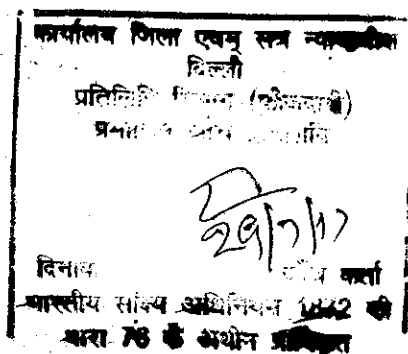 कार्यालय जिला एवम् सत्र न्यायाधीश
दिल्ली
प्रतिलिपि विभाग (फौजदारी)
29/7/17
दिनांक कर्ता
भारतीय सांक्ष्य अधिनियम 1872 की
धारा 76 के अधीन प्राधिकृत